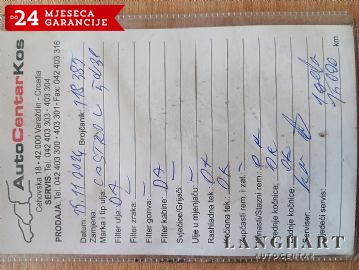 DO 24 MJESECA
GARANCIJE
AutoCentarKos
Cehovska 18 - 42 000 Varaždin - Croatia
SERVIS: Tel: 042 403 303 - 403 304
PRODAJA: Tel: 042 403 300 - 403 301 - Fax: 042 403 316
Datum: Brojčanik: 118.385
Zamjena:
Marka i tip ulja: CASTROL 5w30
Filter ulja: DA
Filter zraka: -
Filter goriva: -
Filter kabine: DA
Svjećice/Grijači: -
Ulje u mjenjaču: -
Rashladna tek.: OK
Kočiona tek.: OK
Zupčasti rem. i zat. -
Klinasti/Strazni rem.:
Prednje kočnice: OK
Zadnje kočnice: OK
Sljedeći servis: km
LANGHART